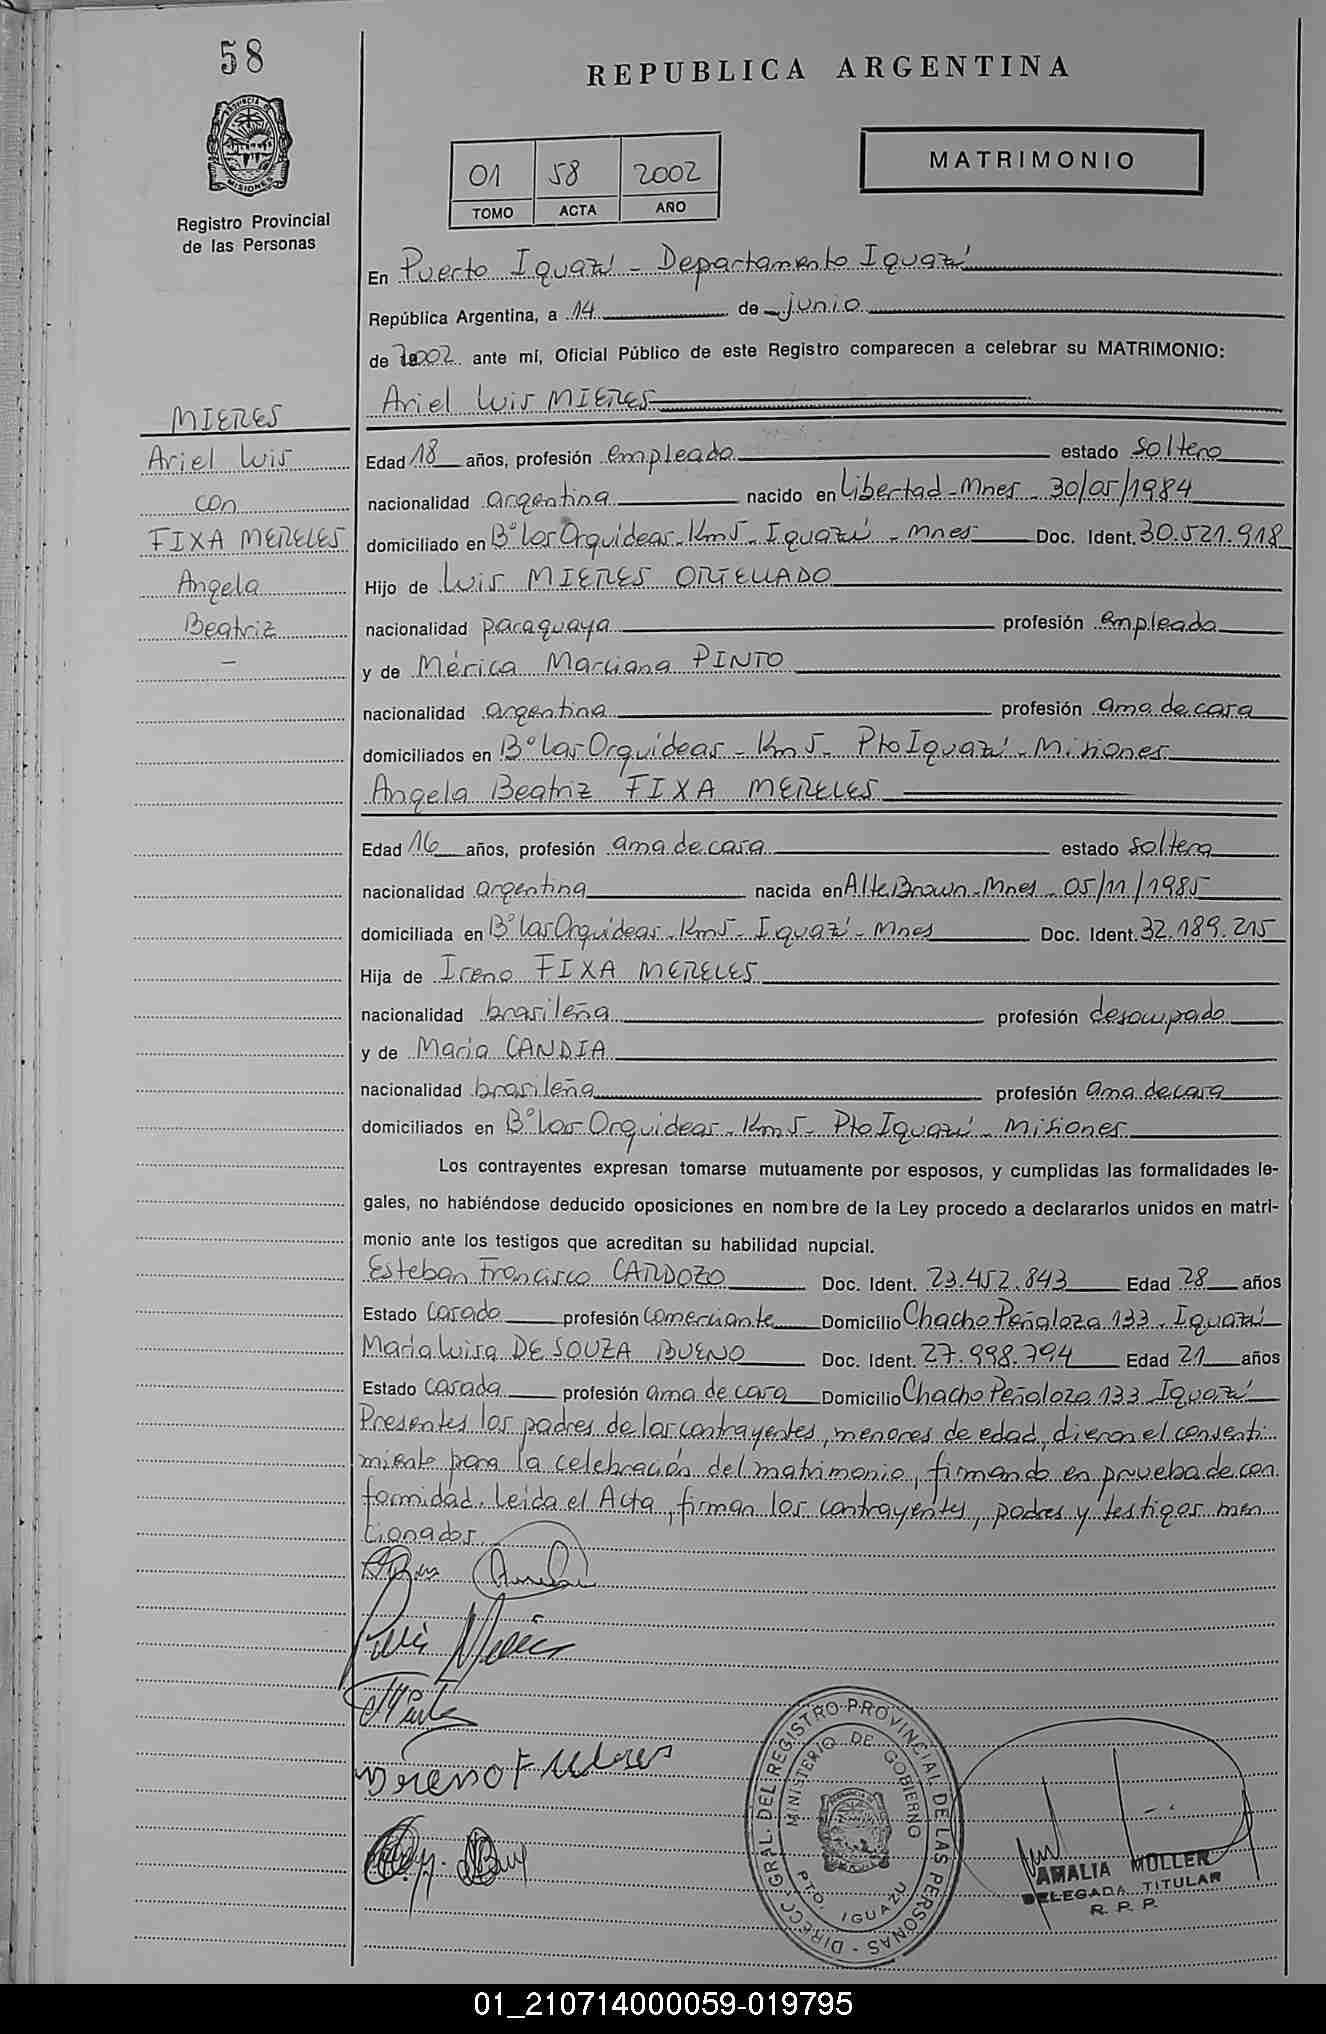 58
REPUBLICA ARGENTINA
PROVINCIA DE
MISIONES
Registro Provincial
de las Personas
01 58 2002
TOMO ACTA AÑO
MATRIMONIO
En Puerto Iguazú - Departamento Iguazú
República Argentina, a 14 de junio
de 2002 ante mí, Oficial Público de este Registro comparecen a celebrar su MATRIMONIO:
Ariel Luis MIERES
MIERES
Ariel Luis
con
FIXA MERELES
Angela
Beatriz
-
Edad 18 años, profesión empleado estado soltero
nacionalidad argentina nacido en Libertad - Mnes - 30/05/1984
domiciliado en Bº Las Orquídeas - Km 5 - Iguazú - Mnes Doc. Ident. 30.521.918
Hijo de Luis MIERES ORTELLADO
nacionalidad paraguaya profesión empleado
y de Mérica Marciana PINTO
nacionalidad argentina profesión ama de casa
domiciliados en Bº Las Orquídeas - Km 5 - Pto Iguazú - Misiones
Angela Beatriz FIXA MERELES
Edad 16 años, profesión ama de casa estado soltera
nacionalidad argentina nacida en Alte Brown - Mnes - 05/11/1985
domiciliada en Bº Las Orquídeas - Km 5 - Iguazú - Mnes Doc. Ident. 32.189.215
Hija de Ireno FIXA MERELES
nacionalidad brasileña profesión desocupado
y de Maria CANDIA
nacionalidad brasileña profesión ama de casa
domiciliados en Bº Las Orquideas - Km 5 - Pto Iguazú - Misiones
Los contrayentes expresan tomarse mutuamente por esposos, y cumplidas las formalidades le-
gales, no habiéndose deducido oposiciones en nombre de la Ley procedo a declararlos unidos en matri-
monio ante los testigos que acreditan su habilidad nupcial.
Esteban Francisco CARDOZO Doc. Ident. 23.452.843 Edad 28 años
Estado casado profesión comerciante Domicilio Chacho Peñaloza 133 - Iguazú
Maria Luisa DE SOUZA BUENO Doc. Ident. 27.998.794 Edad 21 años
Estado casada profesión ama de casa Domicilio Chacho Peñaloza 133 - Iguazú
Presentes los padres de los contrayentes, menores de edad, dieron el consenti-
miento para la celebración del matrimonio, firmando en prueba de con
formidad. Leída el Acta, firman los contrayentes, padres y testigos men
cionados.
Luis Mieres
DIRECC. GRAL. DEL REGISTRO PROVINCIAL DE LAS PERSONAS -
MINISTERIO DE GOBIERNO
PTO. IGUAZU
AMALIA MÜLLER
DELEGADA TITULAR
R. P. P.
01_210714000059-019795